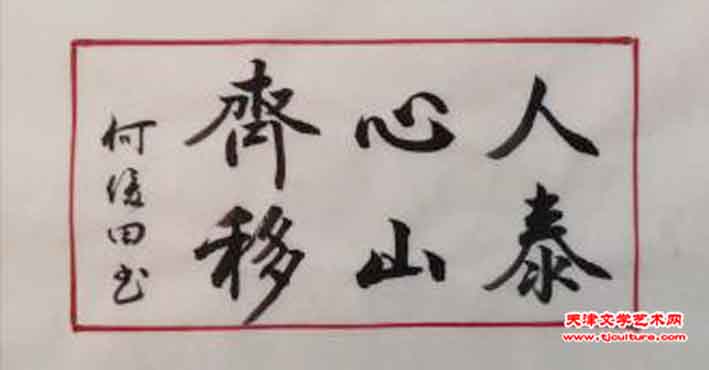 人心齊
泰山移
何俊田书
天津文学艺术网
www.tjculture.com